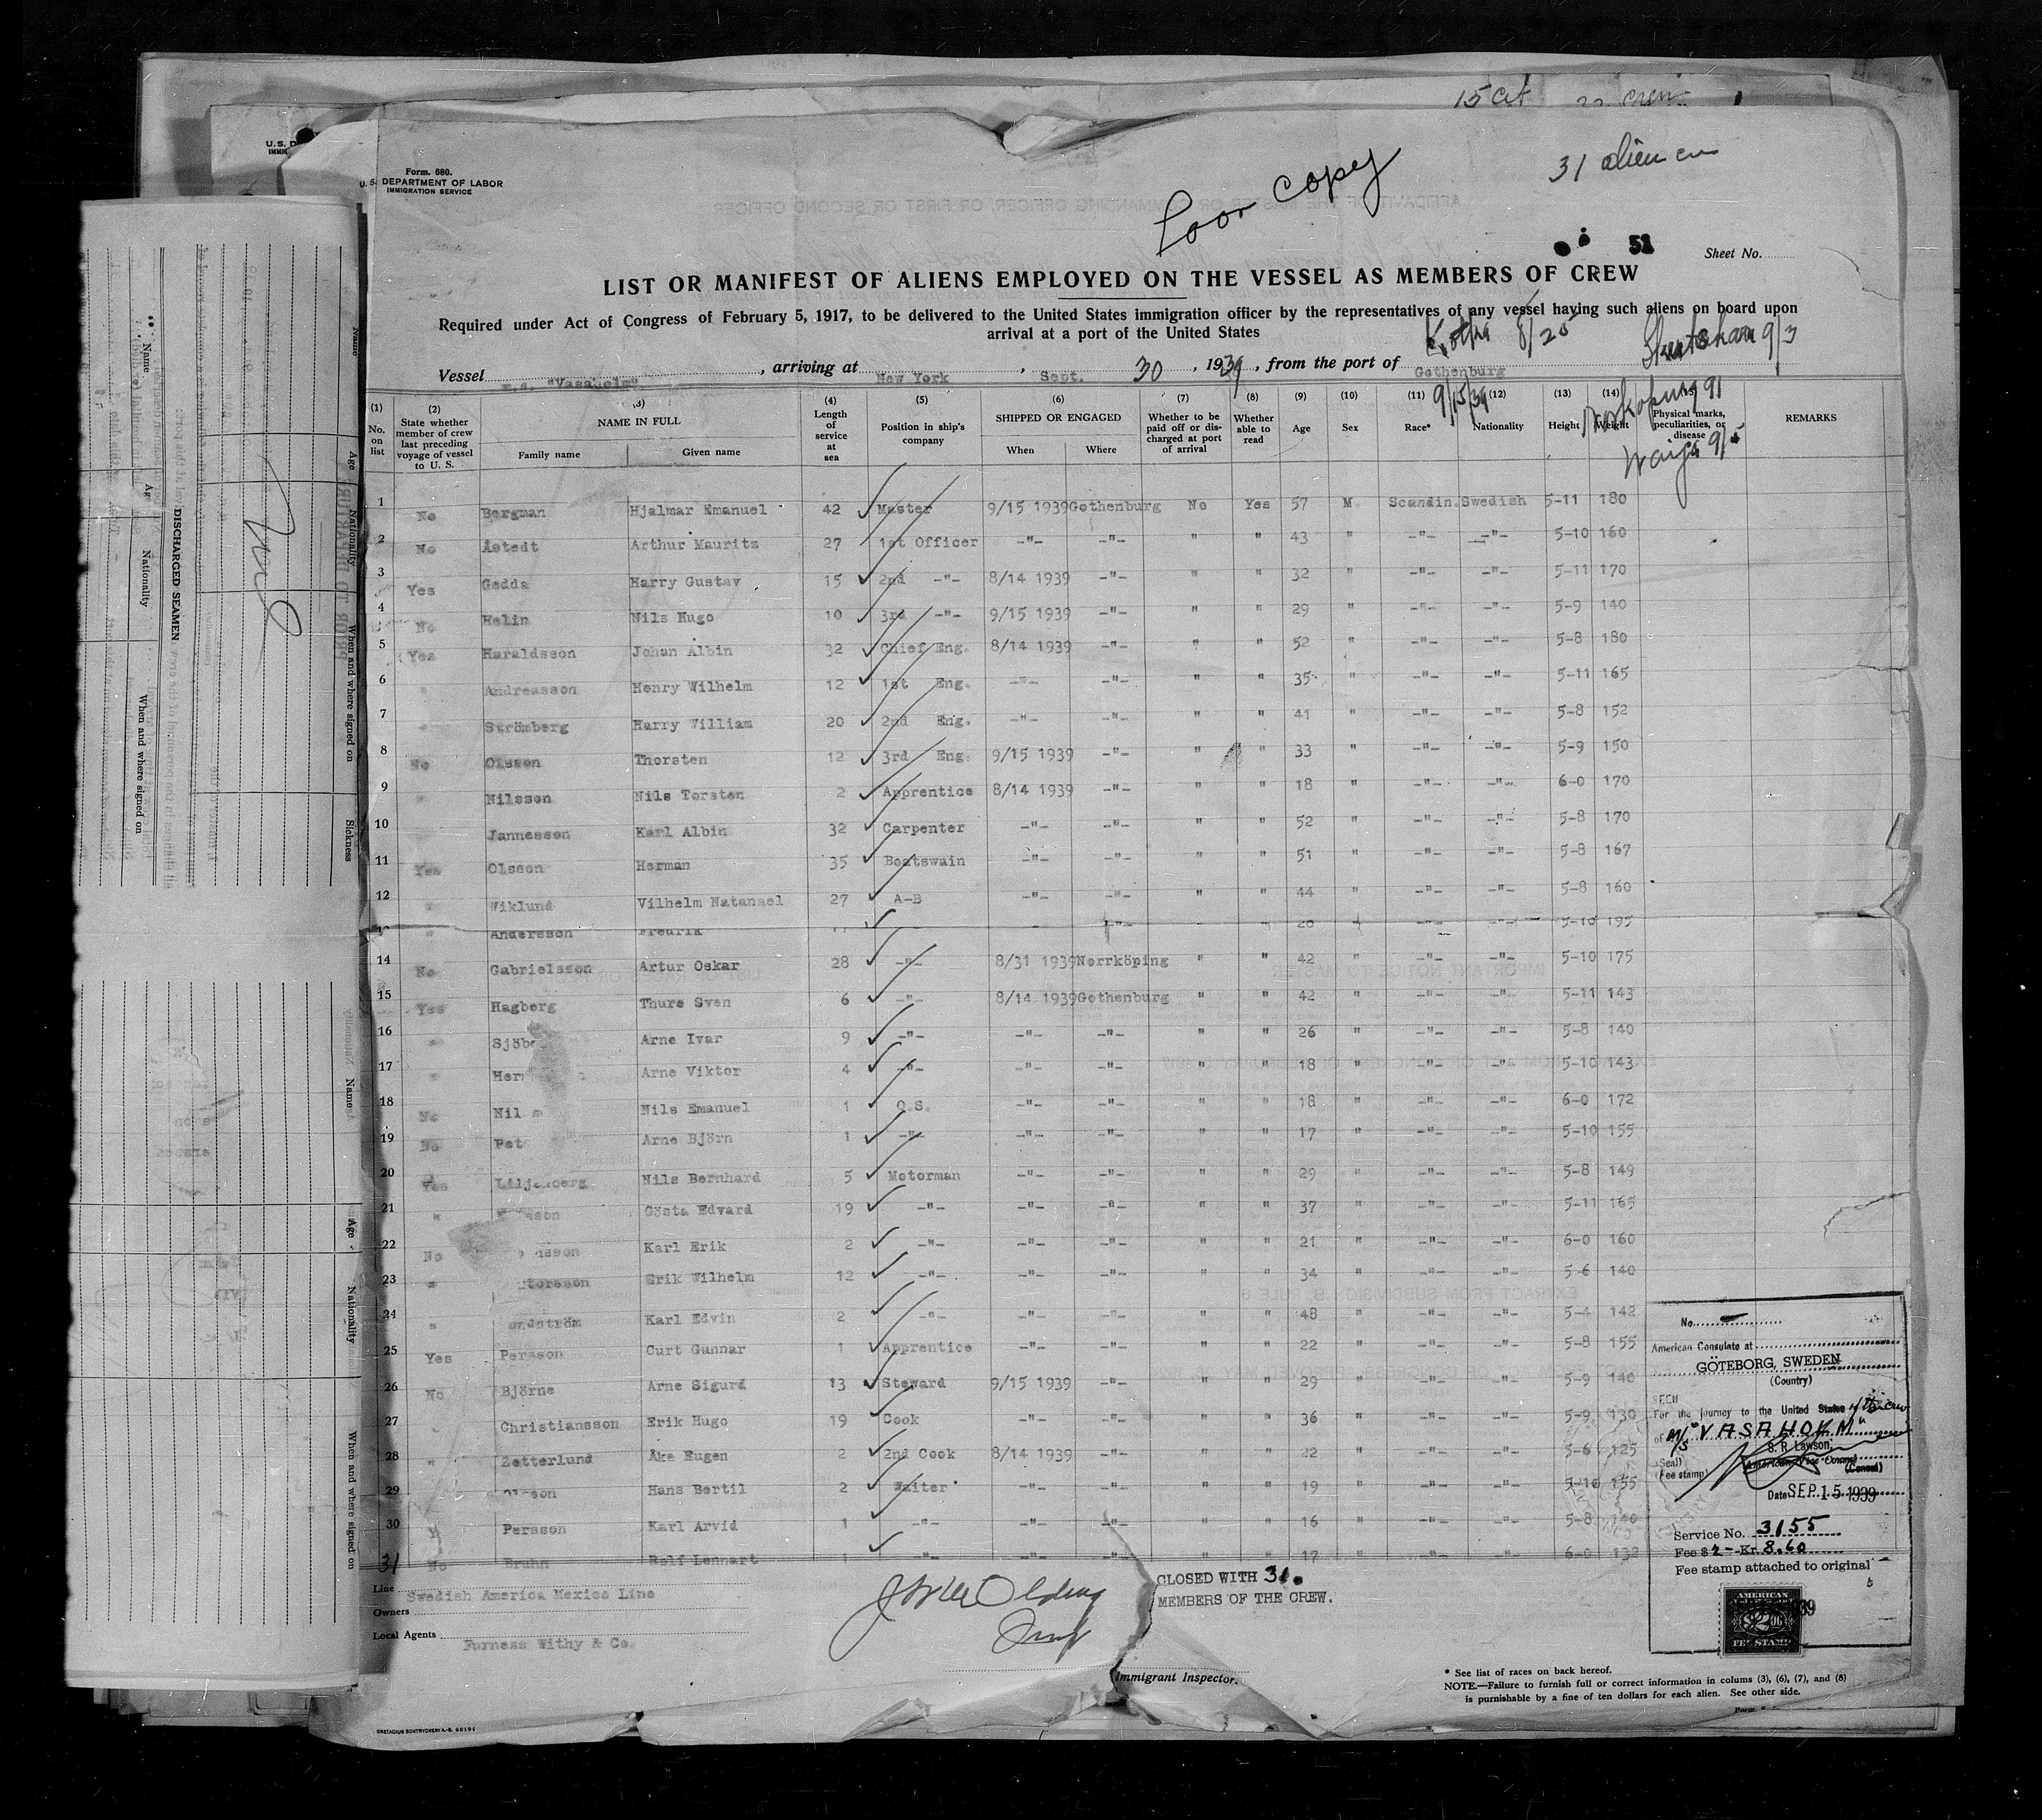 15 at 22 crew
31 alien
Poor copy
U. S. D
IMMIG
Form. 680.
U. S. DEPARTMENT OF LABOR
IMMIGRATION SERVICE
51
Sheet No.
LIST OR MANIFEST OF ALIENS EMPLOYED ON THE VESSEL AS MEMBERS OF CREW
Required under Act of Congress of February 5, 1917, to be delivered to the United States immigration officer by the representatives of any vessel having such aliens on board upon
arrival at a port of the United States
8/25
9/3
Vessel m.s. "Vasaholm", arriving at New York, Sept. 30, 1939, from the port of Gothenburg
9/15/39
9/1
9/5
(1) No. on list
(2) State whether member of crew last preceding voyage of vessel to U. S.
(3) NAME IN FULL Family name Given name
(4) Length of service at sea
(5) Position in ship's company
(6) SHIPPED OR ENGAGED When Where
(7) Whether to be paid off or discharged at port of arrival
(8) Whether able to read
(9) Age
(10) Sex
(11) Race*
(12) Nationality
(13) Height
(14) Weight
(15) Physical marks, peculiarities, or disease
REMARKS
1 No Bergman Hjalmar Emanuel 42 Master 9/15 1939 Gothenburg No Yes 57 M. Scandin. Swedish 5-11 180
2 No Åstedt Arthur Mauritz 27 1st Officer -"- -"- " " 43 " -"- -"- 5-10 160
3 Yes Gedda Harry Gustav 15 2nd -"- 8/14 1939 -"- " " 32 " -"- -"- 5-11 170
4 No Helin Nils Hugo 10 3rd -"- 9/15 1939 -"- " " 29 " -"- -"- 5-9 140
5 Yes Haraldsson Johan Albin 32 Chief Eng. 8/14 1939 -"- " " 52 " -"- -"- 5-8 180
6 " Andreasson Henry Wilhelm 12 1st Eng. -"- -"- " " 35 " -"- -"- 5-11 165
7 " Strömberg Harry William 20 2nd Eng. -"- -"- " " 41 " -"- -"- 5-8 152
8 No Olsson Thorsten 12 3rd Eng. 9/15 1939 -"- " " 33 " -"- -"- 5-9 150
9 " Nilsson Nils Torsten 2 Apprentice 8/14 1939 -"- " " 18 " -"- -"- 6-0 170
10 " Jannesson Karl Albin 32 Carpenter -"- -"- " " 52 " -"- -"- 5-8 170
11 Yes Olsson Herman 35 Boatswain -"- -"- " " 51 " -"- -"- 5-8 167
12 " Wiklund Vilhelm Natanael 27 A-B -"- -"- " " 44 " -"- -"- 5-8 160
13 " Andersson Fredrik -"- " 5-10 195
14 No Gabrielsson Artur Oskar 28 -"- 8/31 1939 Norrköping " " 42 " -"- -"- 5-10 175
15 Yes Hagberg Thure Sven 6 -"- 8/14 1939 Gothenburg " " 42 " -"- -"- 5-11 143
16 " Sjöbe Arne Ivar 9 -"- -"- -"- " " 26 " -"- -"- 5-8 140
17 " Her Arne Viktor 4 -"- -"- -"- " " 18 " -"- -"- 5-10 143
18 No Nil Nils Emanuel 1 O.S. -"- -"- " " 18 " -"- -"- 6-0 172
19 No Pet Arne Björn 1 -"- -"- -"- " " 17 " -"- -"- 5-10 155
20 Yes Nils Bernhard 5 Motorman -"- -"- " " 29 " -"- -"- 5-8 149
21 " Gösta Edvard 19 -"- -"- -"- " " 37 " -"- -"- 5-11 165
22 No Karl Erik 2 -"- -"- -"- " " 21 " -"- -"- 6-0 160
23 " Erik Wilhelm 12 -"- -"- -"- " " 34 " -"- -"- 5-6 140
24 " Karl Edvin 2 -"- -"- -"- " " 48 " -"- -"- 5-4 142
25 Yes Persson Curt Gunnar 1 Apprentice -"- -"- " " 22 " -"- -"- 5-8 155
26 No Björne Arne Sigurd 13 Steward 9/15 1939 -"- " " 29 " -"- -"- 5-9 140
27 " Christiansson Erik Hugo 19 Cook -"- -"- " " 36 " -"- -"- 5-9 130
28 " Zetterlund Åke Eugen 2 2nd Cook 8/14 1939 -"- " " 22 " -"- -"- 5-6 125
29 Hans Bertil 2 Waiter -"- -"- " " 19 " -"- -"- 5-10 155
30 " Persson Karl Arvid 1 -"- -"- -"- " " 16 " -"- -"- 5-8 140
31 No Bruhn Rolf Lennart 1 -"- -"- -"- " " 17 " -"- -"- 6-0
Line Swedish America Mexico Line
Owners
Local Agents Furness Withy & Co.
CLOSED WITH 31.
MEMBERS OF THE CREW.
Immigrant Inspector.
No.
American Consulate at
GÖTEBORG, SWEDEN
(Country)
SEEN
For the journey to the United States
of M/S "VASAHOLM"
S. R. Lawson,
(Seal)
(Fee stamp)
American Vice Consul
(Consul)
Date SEP 15 1939
Service No. 3155
Fee $ 2- Kr. 8.60
Fee stamp attached to original
AMERICAN
$2.00
FEE STAMP
* See list of races on back hereof.
NOTE.—Failure to furnish full or correct information in colums (3), (6), (7), and (8)
is punishable by a fine of ten dollars for each alien. See other side.
Form
ORSTADIUS BOKTRYCKERI A.-B. 60194
DISCHARGED SEAMEN
Name
Age
Nationality
When and where signed on
Name
Age
Nationality
When and where signed on
Sickness
Name
Age
Nationality
When and where signed on